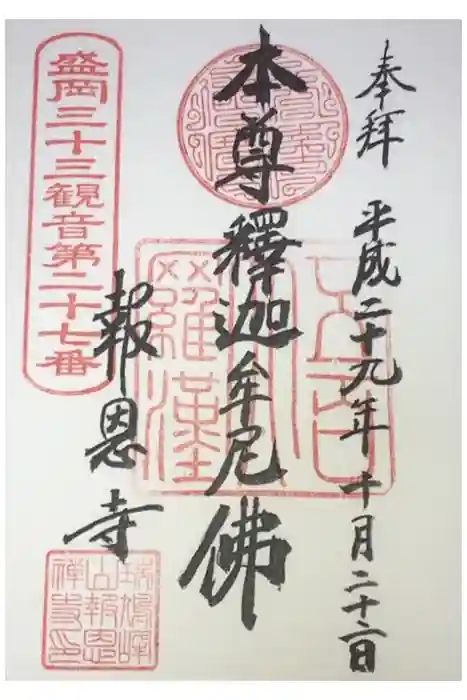 奉拝 平成二十九年十月二十二日
本尊釋迦牟尼佛
五百羅漢
報恩寺
盛岡三十三観音第二十七番
瑞鳩峰山報恩禅寺印